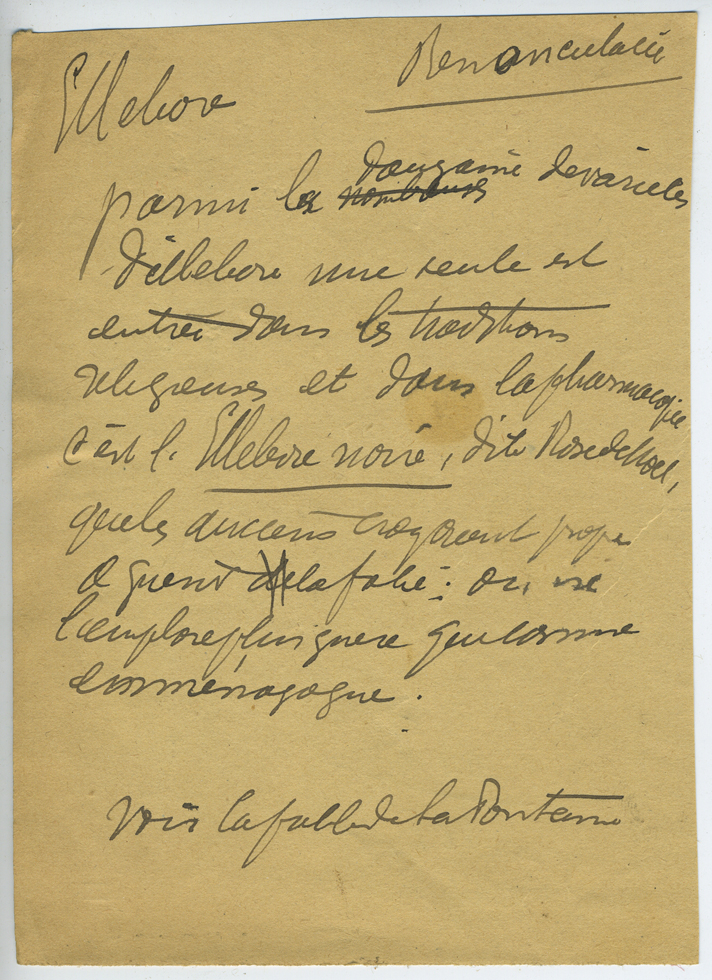 Ellebore
Renonculacée
parmi les nombreuses douzaine de variétés
d'ellebore une seule est
entrée dans les traditions
religieuses et dans la pharmacopée
c'est l'Ellebore noire, dite Rose de Noel,
que les anciens croyaient propre
a guerir de la folie : on ne
l'emploie plus guere que comme
emménagogue.
Voir la fable de La Fontaine